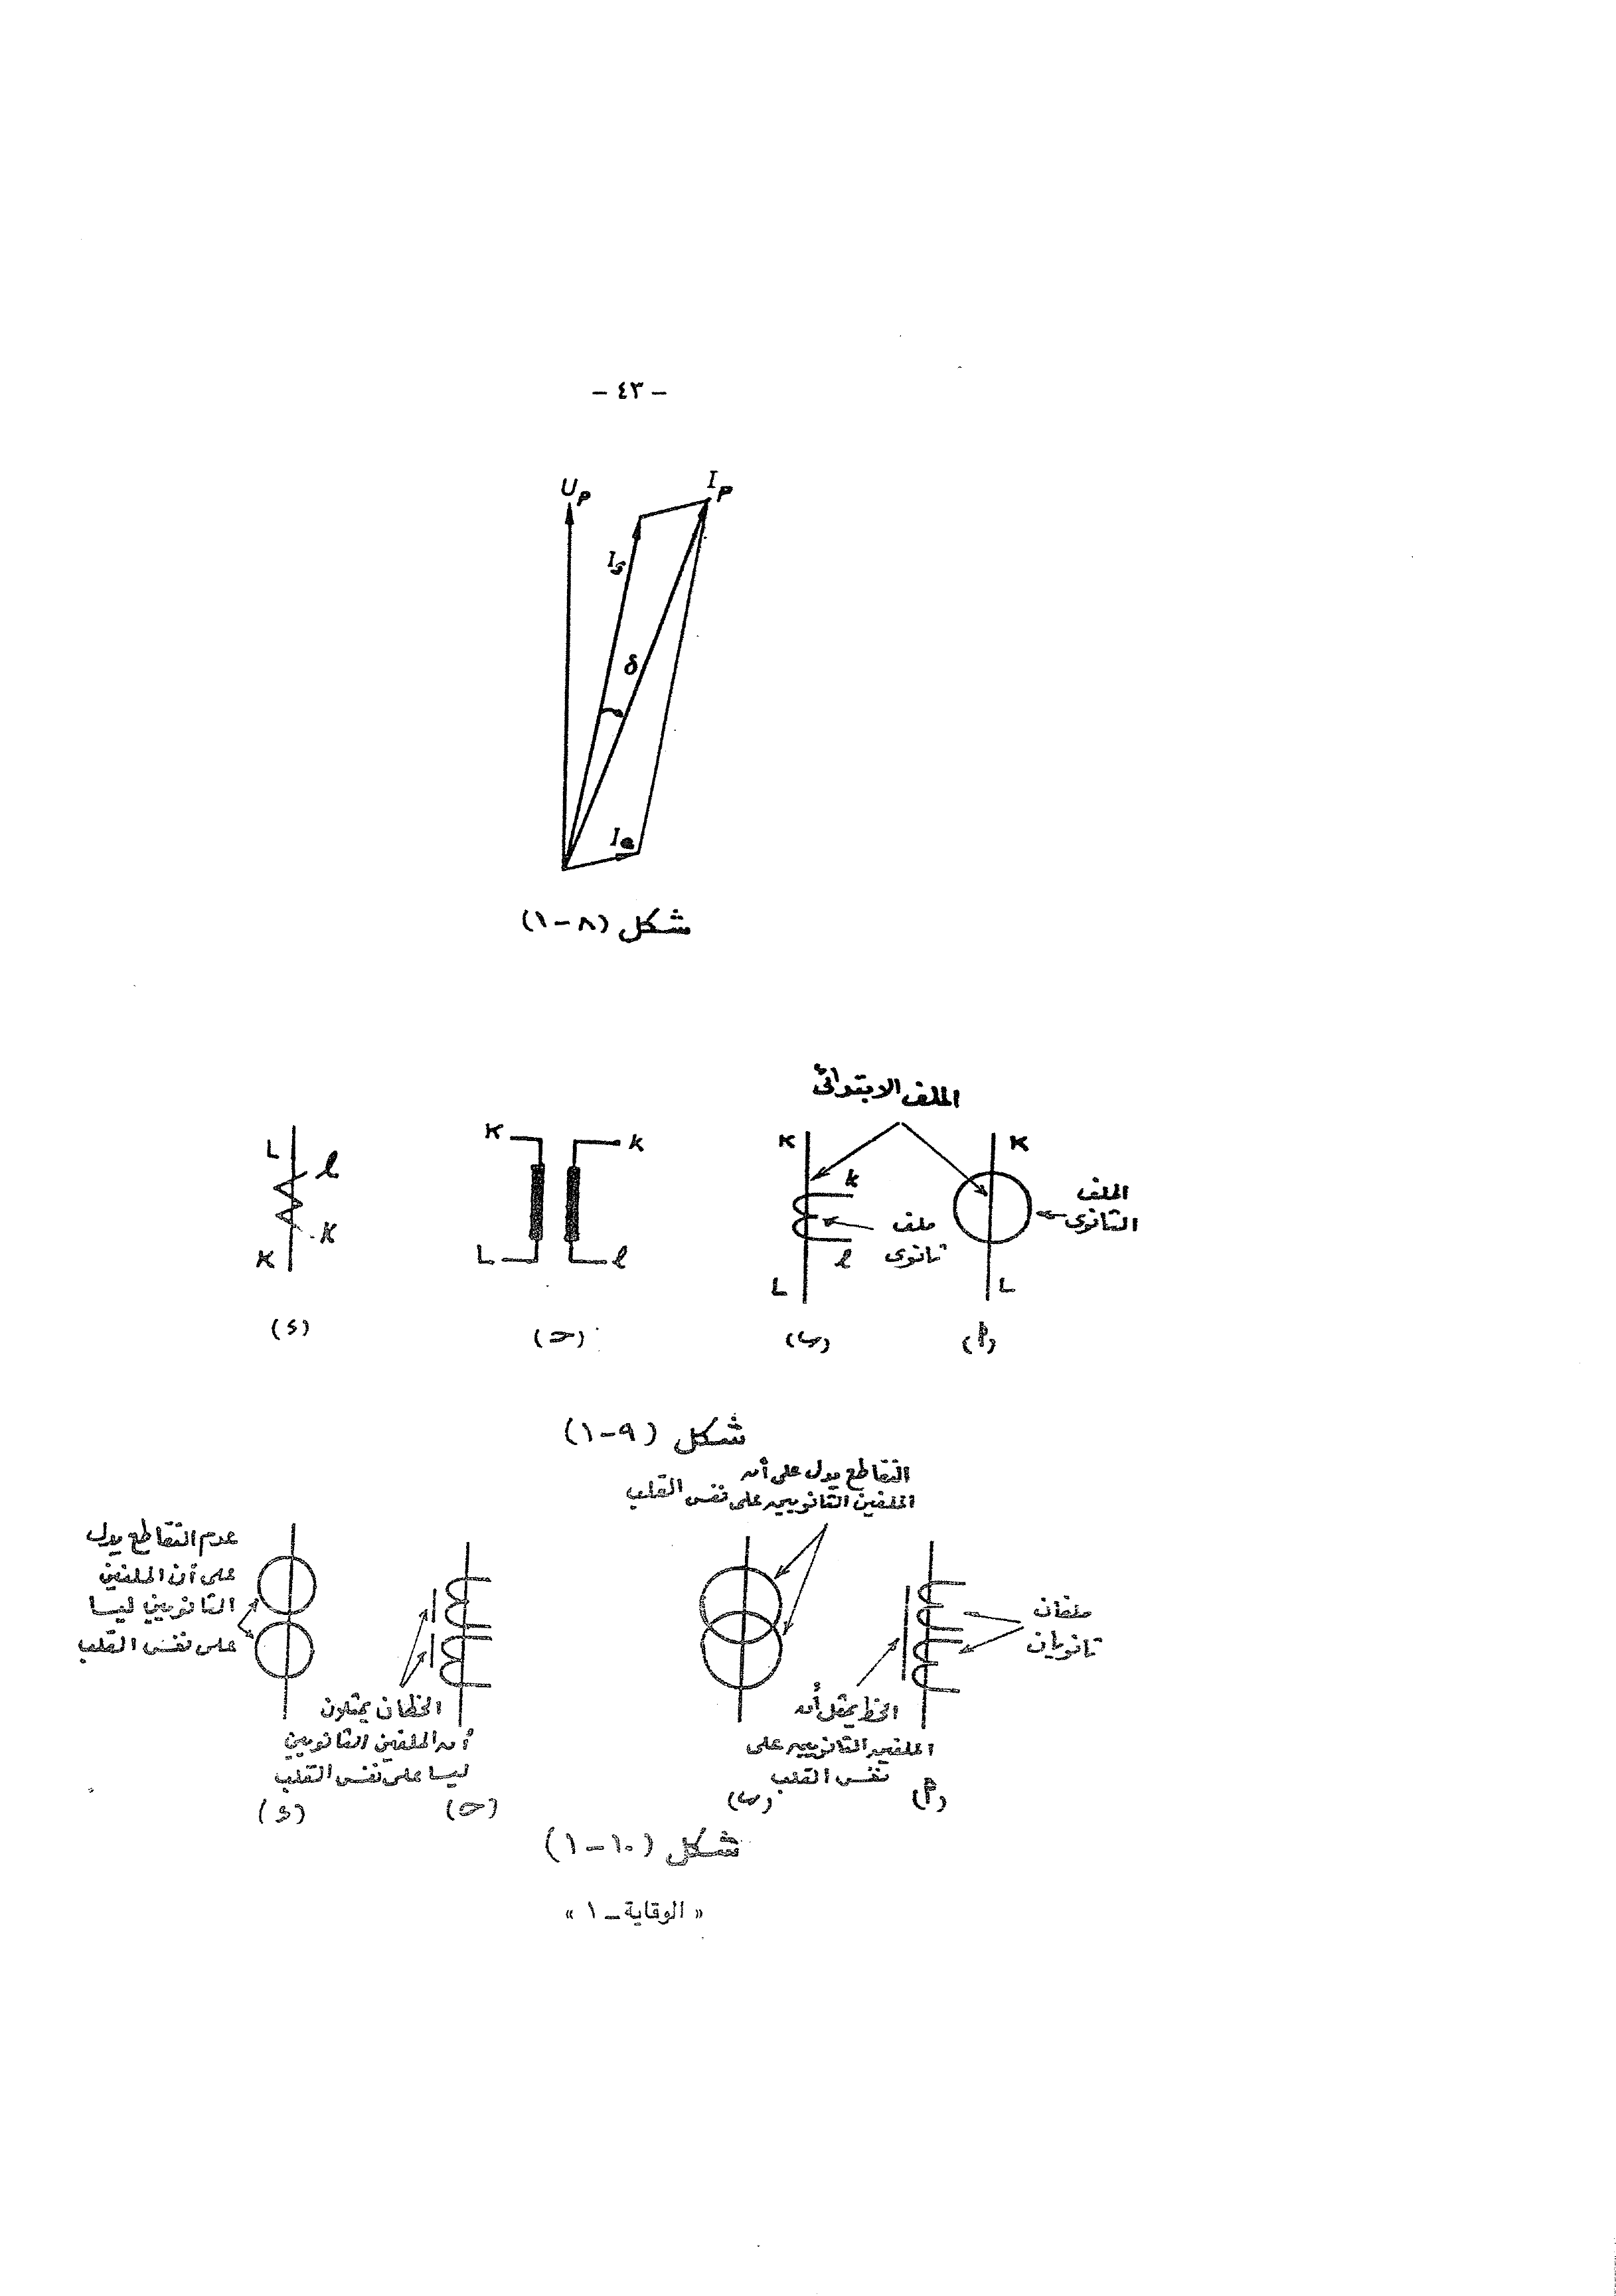 – ٤٣ –
U_P
I_P
I_S
δ
I_e
شكل (٨-١)
الملف الابتدائى
K
الملف
الثانوى
L
(أ)
K
k
ملف
ثانوى
l
L
(ب)
K
k
L
l
(ح)
L
l
K
K
(د)
شكل (٩-١)
التقاطع يدل على أن
الملفين الثانويين على نفس القلب
ملفان
ثانويان
الخط يمثل أن
الملفين الثانويين على
نفس القلب
(أ)
(ب)
الخطان يمثلان
أن الملفين الثانويين
ليسا على نفس القلب
(ح)
عدم التقاطع يدل
على أن الملفين
الثانويين ليسا
على نفس القلب
(د)
شكل (١٠-١)
« الوقاية – ١ »